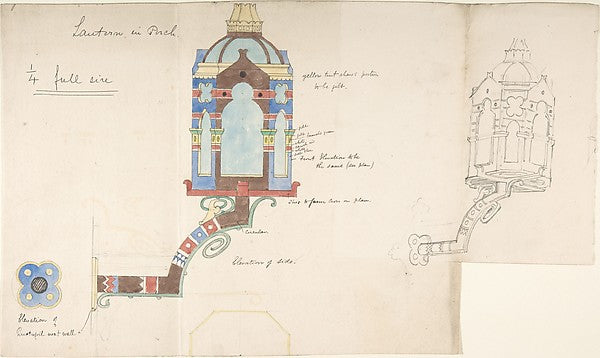 Lantern in Porch.
1/4 full size
yellow tint shows portion
to be gilt.
front Elevation to be
the same (see plan)
this to form hexagon in plan
circular
Elevation of side.
Elevation of
Quatrefoil next wall